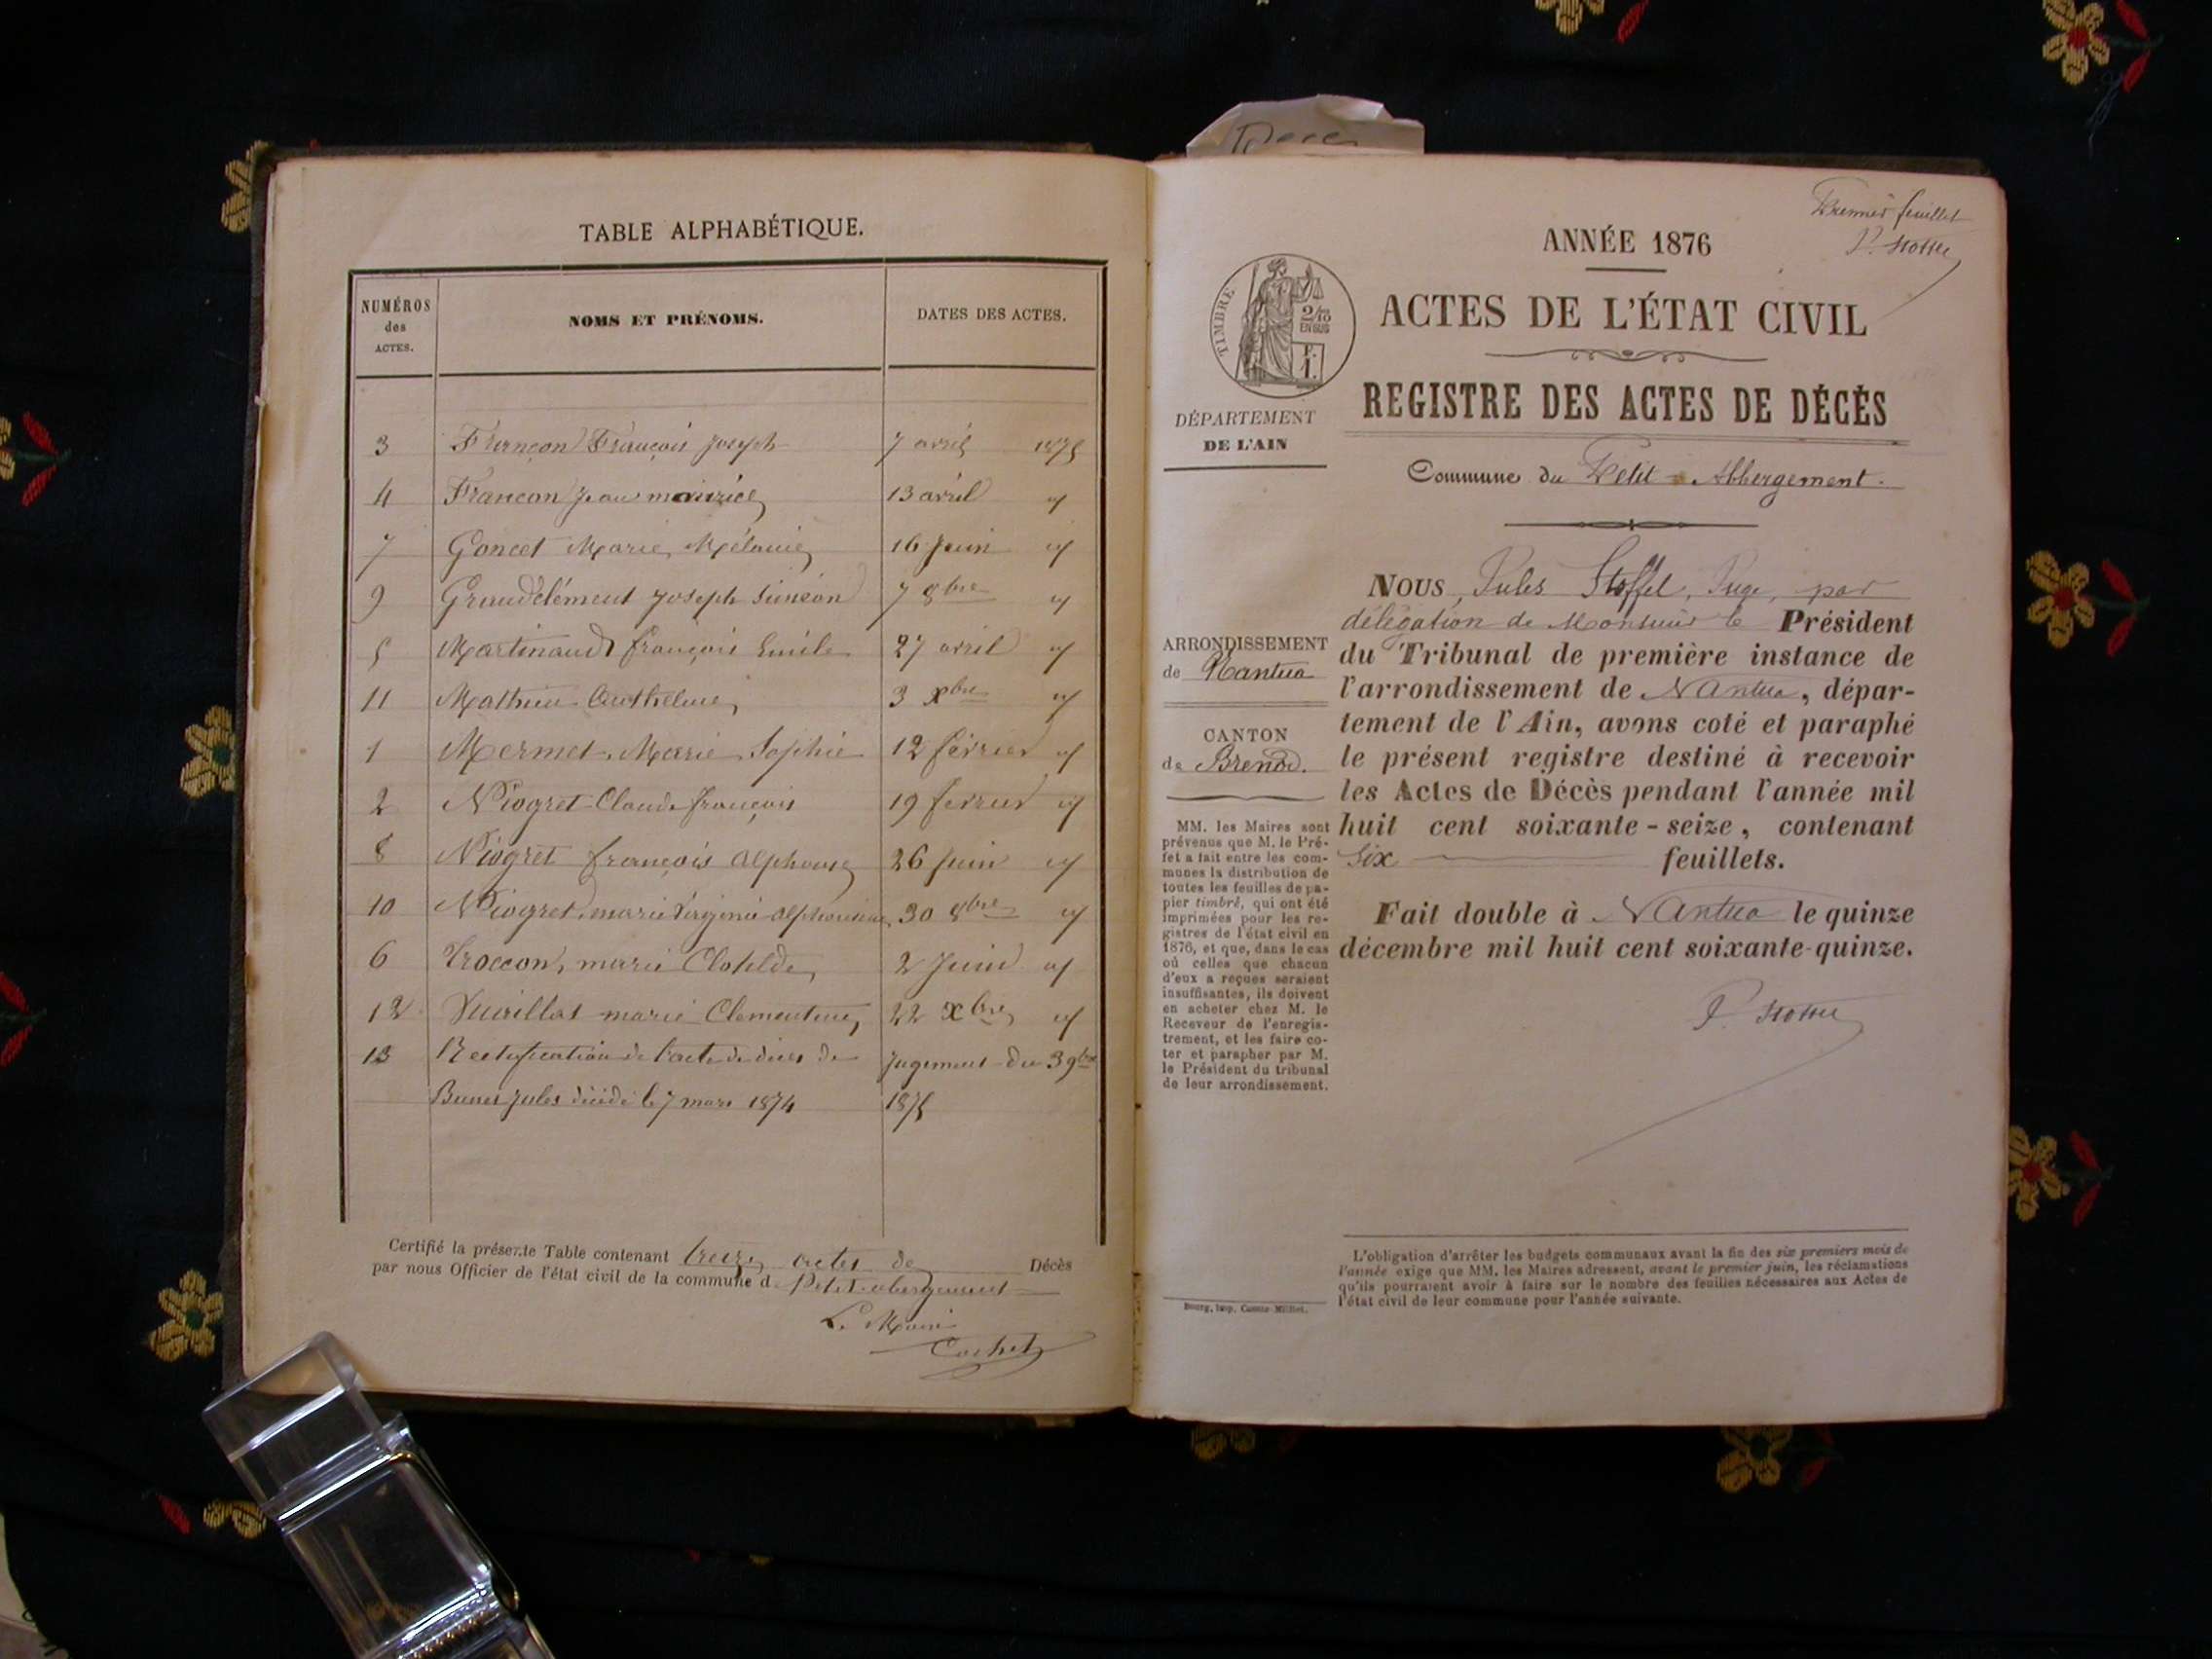 TABLE ALPHABÉTIQUE.
NUMÉROS des ACTES.
NOMS ET PRÉNOMS.
DATES DES ACTES.
3 Françon François Joseph 7 avril 1875
4 Françon Jean maurice 13 avril id
7 Goncet Marie Mélanie 16 Juin id
9 Grandclément Joseph Siméon 7 8bre id
5 Martinaud françois Emile 27 avril id
11 Mathieu Anthelme 3 Xbre id
1 Mermet Marie Sophie 12 février id
2 Niogret Claude françois 19 fevrier id
8 Niogret françois Alphonse 26 Juin id
10 Niogret marie Virginie alphonsine 30 8bre id
6 Troccon, marie Clotilde 2 Juin id
12 Vuaillat marie Clementine 22 Xbre id
13 Rectification de l'acte de décès de Jugement du 3 9bre
jules décédé le 7 mars 1874 1875
Certifié la présente Table contenant treize actes de Décès
par nous Officier de l'état civil de la commune d Petit-abergement
Le Maire
Cochet
Décès
Premier feuillet
ANNÉE 1876
TIMBRE
2/10 EN SUS
F. 1.
ACTES DE L'ÉTAT CIVIL
REGISTRE DES ACTES DE DÉCÈS
Commune du Petit-Abbergement.
DÉPARTEMENT
DE L'AIN
ARRONDISSEMENT
de Nantua
CANTON
de Brenod.
MM. les Maires sont
prévenus que M. le Pré-
fet a fait entre les com-
munes la distribution de
toutes les feuilles de pa-
pier timbré, qui ont été
imprimées pour les re-
gistres de l'état civil en
1876, et que, dans le cas
où celles que chacun
d'eux a reçues seraient
insuffisantes, ils doivent
en acheter chez M. le
Receveur de l'enregis-
trement, et les faire co-
ter et parapher par M.
le Président du tribunal
de leur arrondissement.
Bourg, Imp. Comte-Milliet.
NOUS, Jules Stoffel, Juge, par
délégation de Monsieur le Président
du Tribunal de première instance de
l'arrondissement de Nantua, dépar-
tement de l'Ain, avons coté et paraphé
le présent registre destiné à recevoir
les Actes de Décès pendant l'année mil
huit cent soixante-seize, contenant
Six feuillets.
Fait double à Nantua le quinze
décembre mil huit cent soixante-quinze.
L'obligation d'arrêter les budgets communaux avant la fin des six premiers mois de
l'année exige que MM. les Maires adressent, avant le premier juin, les réclamations
qu'ils pourraient avoir à faire sur le nombre des feuilles nécessaires aux Actes de
l'état civil de leur commune pour l'année suivante.